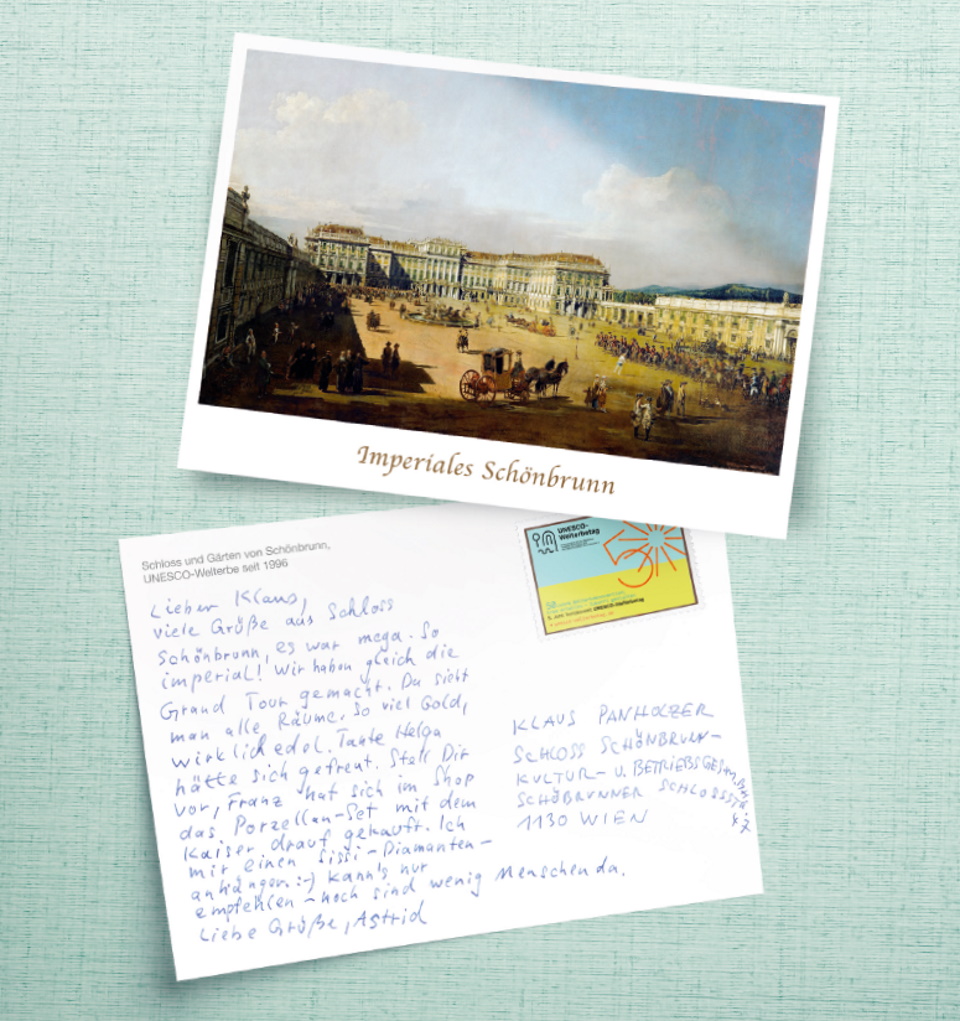 Imperiales Schönbrunn
Schloss und Gärten von Schönbrunn,
UNESCO-Welterbe seit 1996
UNESCO-
Welterbetag
Lieber Klaus,
viele Grüße aus Schloss
Schönbrunn, es war mega. So
imperial! Wir haben gleich die
Grand Tour gemacht. Du sieht
man alle Räume. So viel Gold,
wirklich edel. Tante Helga
hätte sich gefreut. Stell Dir
vor, Franz hat sich im Shop
das Porzellan-Set mit dem
Kaiser drauf gekauft. Ich
mir einen Sissi-Diamanten-
anhänger. :-) Kann's nur
empfehlen - noch sind wenig Menschen da.
Liebe Grüße, Astrid
KLAUS PANHOLZER
SCHLOSS SCHÖNBRUNN-
KULTUR- U. BETRIEBSGES.M.B.H.
SCHÖBRUNNER SCHLOSSSTR.
47
1130 WIEN